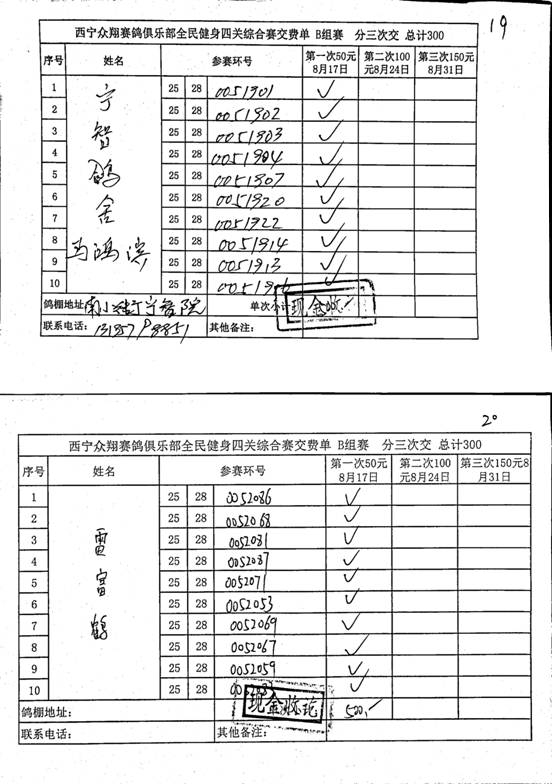 19
西宁众翔赛鸽俱乐部全民健身四关综合赛交费单 B组赛 分三次交 总计300
序号 姓名 参赛环号 第一次50元8月17日 第二次100元8月24日 第三次150元8月31日
宁智鸽舍
1 25 28 0051901 ✓
2 25 28 0051902 ✓
3 25 28 0051903 ✓
4 25 28 0051904 ✓
5 25 28 0051907 ✓
6 25 28 0051920 ✓
7 25 28 0051922 ✓
8 25 28 0051914 ✓
9 25 28 0051913 ✓
10 25 28 ✓
鸽棚地址: 单次小计 现金
联系电话: 其他备注:
20
西宁众翔赛鸽俱乐部全民健身四关综合赛交费单 B组赛 分三次交 总计300
序号 姓名 参赛环号 第一次50元8月17日 第二次100元8月24日 第三次150元8月31日
雷富鹤
1 25 28 0052086 ✓
2 25 28 0052068 ✓
3 25 28 0052081 ✓
4 25 28 0052087 ✓
5 25 28 0052071 ✓
6 25 28 0052053 ✓
7 25 28 0052069 ✓
8 25 28 0052067 ✓
9 25 28 0052059 ✓
10 25 28 ✓
鸽棚地址: 现金收讫 500.-
联系电话: 其他备注: